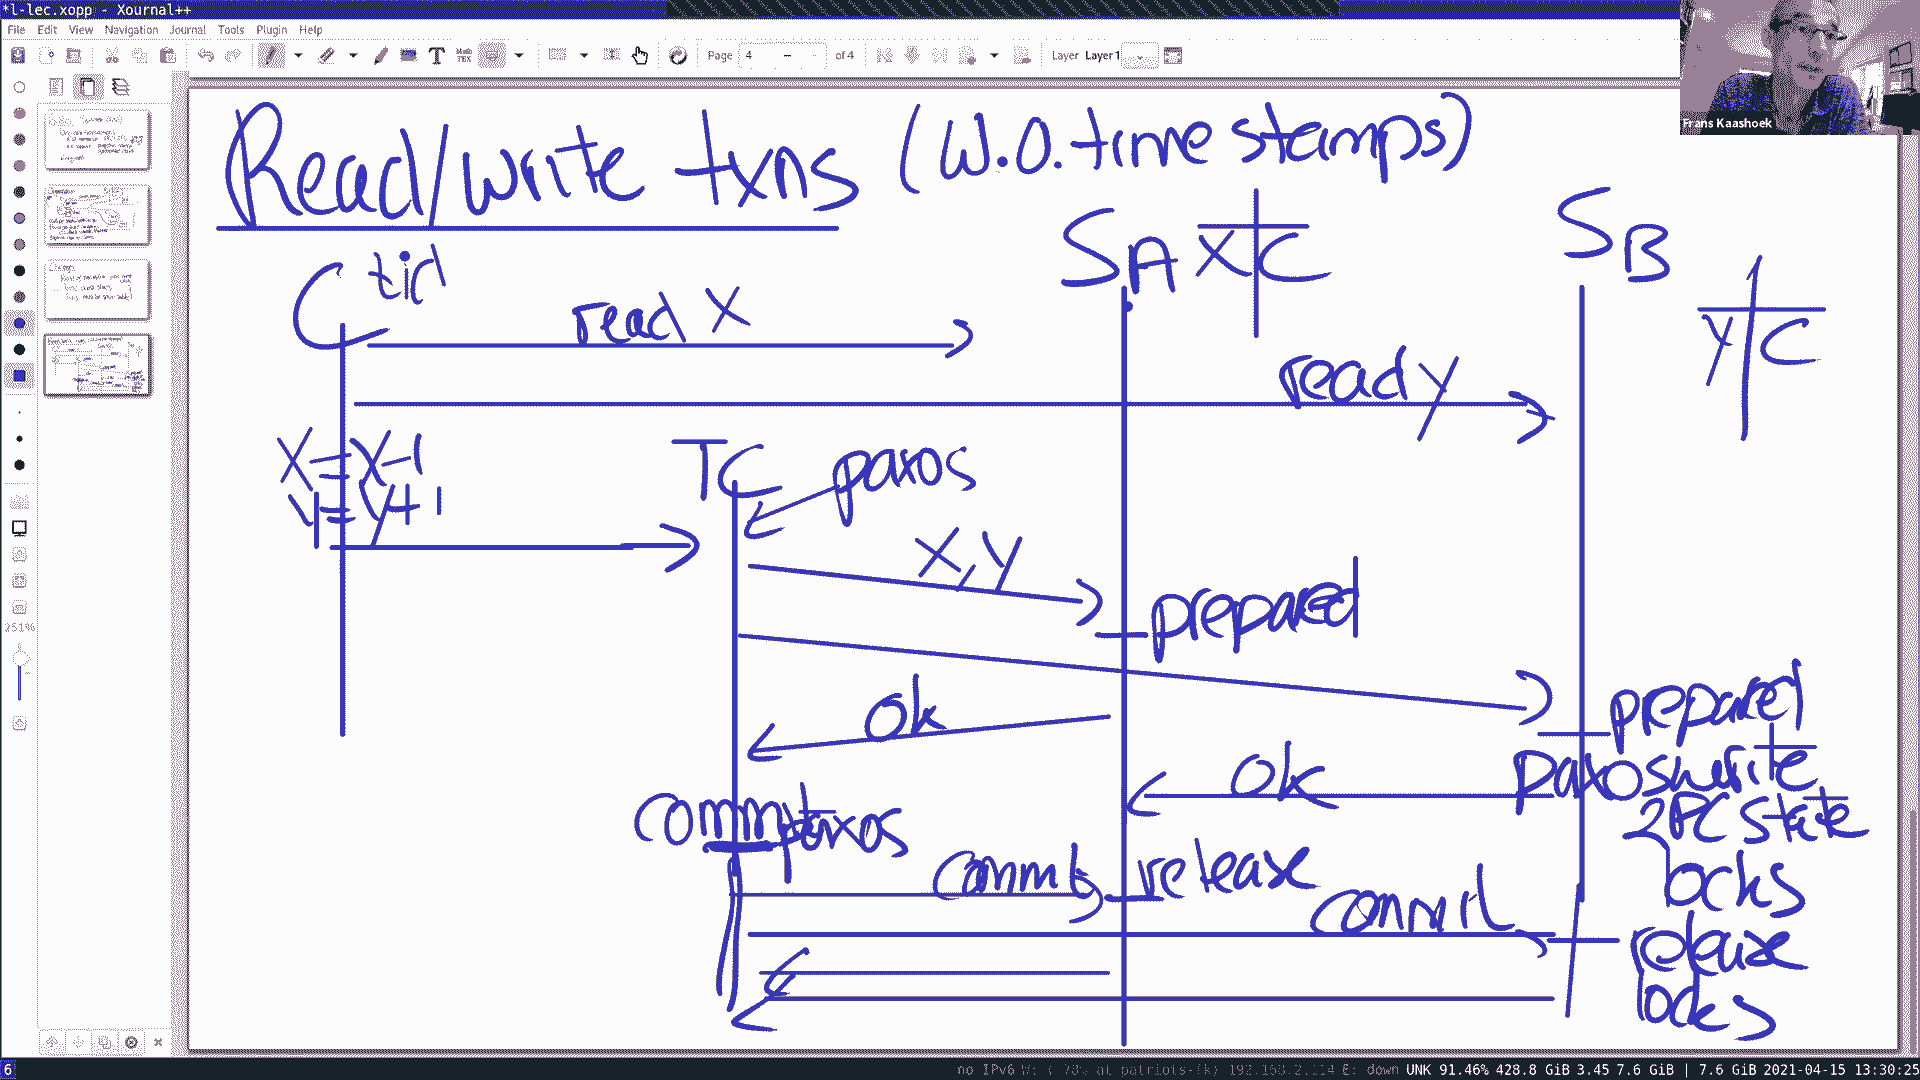 *l-lec.xopp - Xournal++
File Edit View Navigation Journal Tools Plugin Help
Page 4 of 4 Layer Layer 1
Frans Kaashoek
251%
Read/write txns (W.O. time stamps)
C tid
SA X C
SB
Y C
read X
read Y
X = X-1
Y = Y+1
TC paxos
X, Y
prepared
ok
prepared
ok
paxos write
2PC state
locks
commit paxos
commit release
commit
release
locks
6
no IPv6 W: ( 78% at patriots-(k) 192.168.2.114 E: down UNK 91.46% 428.8 GiB 3.45 7.6 GiB | 7.6 GiB 2021-04-15 13:30:25